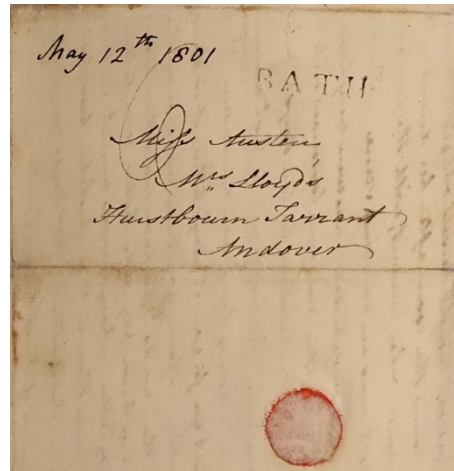 May 12th 1801
BATH
Miss Austen
Mrs Lloyd's
Hurstbourn Tarrant
Andover